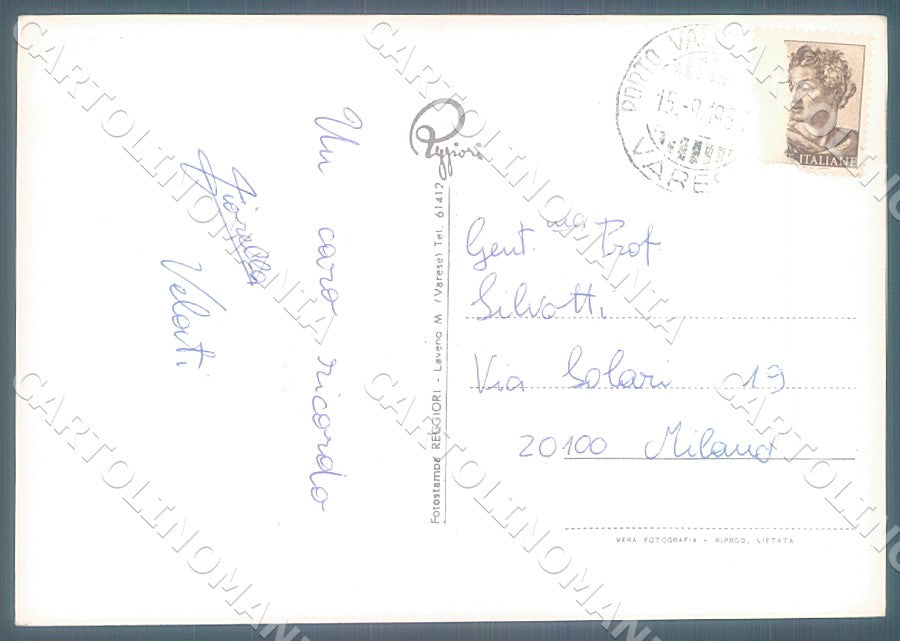 Un caro ricordo
Fiorella
Velati
Reggiori
Fotostampa REGGIORI - Laveno M. (Varese) Tel. 61412
PORTO VAL
15.-9.19
VARES
ITALIANE
Gent.ma Prof
Silvotti
Via Solari 19
20100 Milano
VERA FOTOGRAFIA - RIPROD. VIETATA
CARTOLINOMANIA
CARTOLINOMANIA
CARTOLINOMANIA
CARTOLINOMANIA